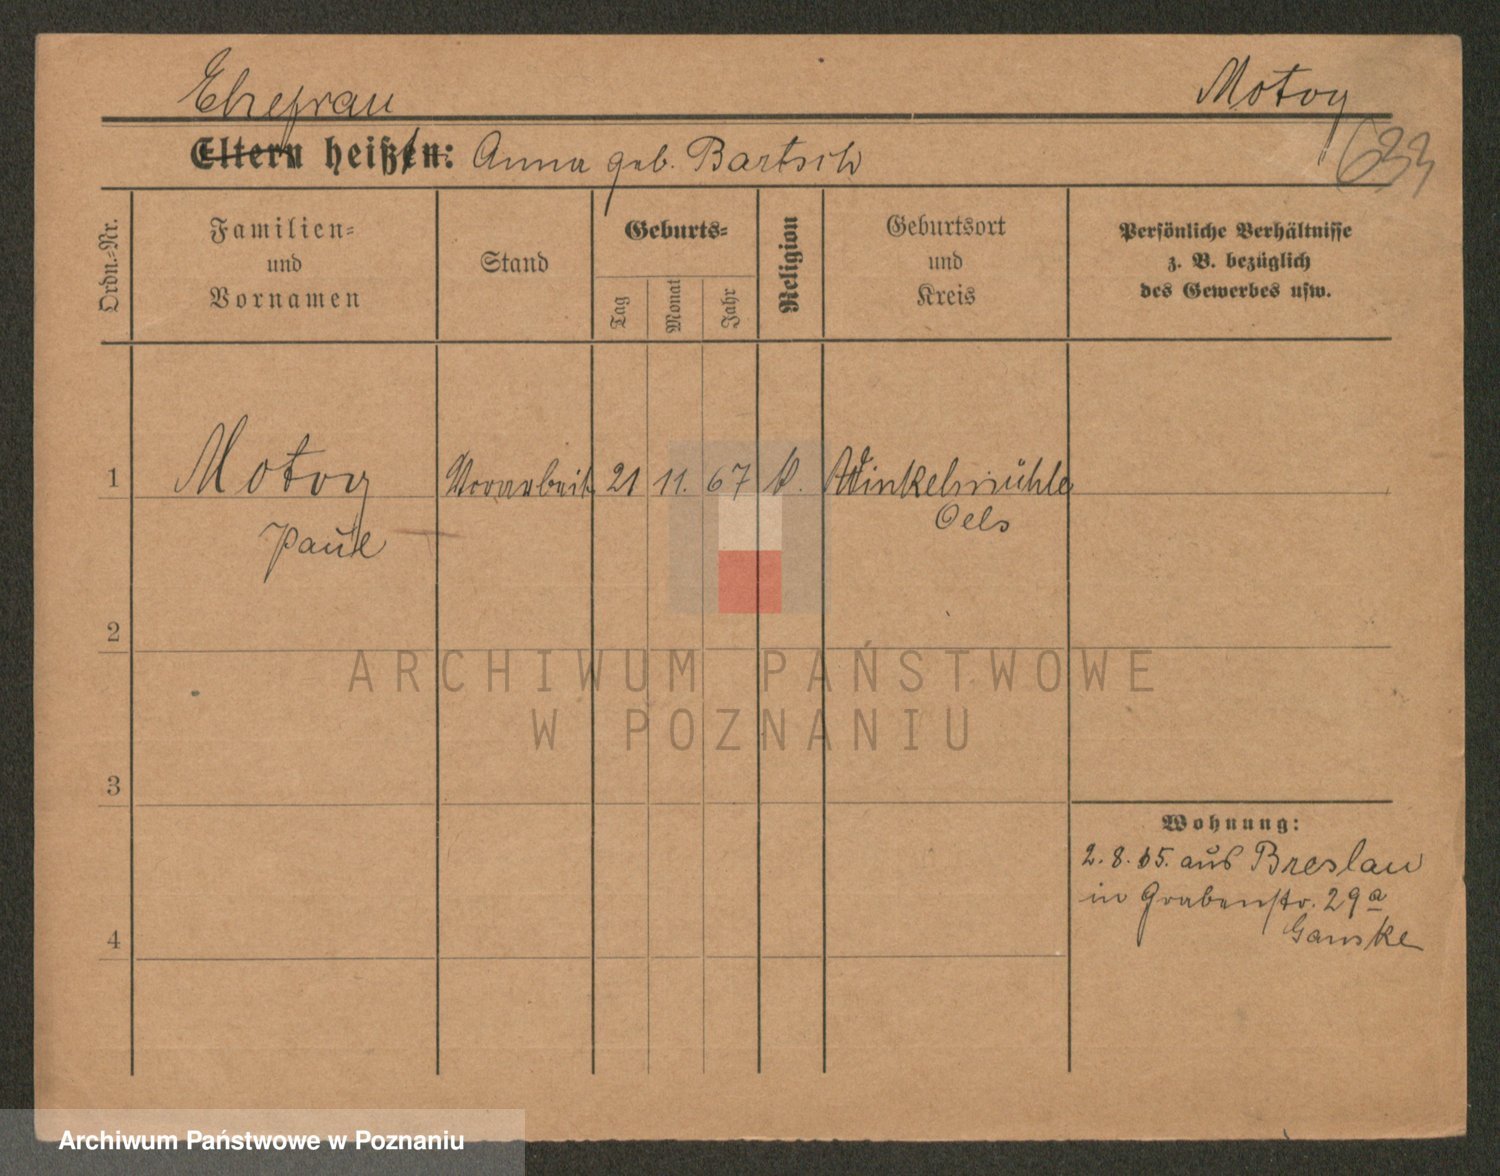 Ehefrau
Motog
633
Eltern heißen: Anna geb. Bartsch
Ordn.-Nr.
Familien-
und
Vornamen
Stand
Geburts-
Tag
Monat
Jahr
Religion
Geburtsort
und
Kreis
Persönliche Verhältnisse
z. B. bezüglich
des Gewerbes usw.
1
Motog
Vorarbeit.
21
11.
67
k.
Winkelmühle
Oels
Paul
2
ARCHIWUM PAŃSTWOWE
W POZNANIU
3
Wohnung:
2. 8. 15. aus Breslau
in Grabenstr. 29a
Ganske
4
Archiwum Państwowe w Poznaniu